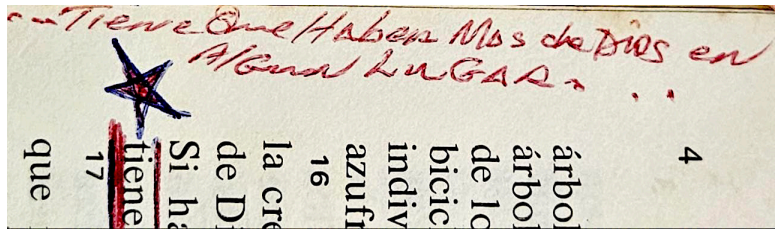 ...Tiene Que Haber Mas de Dios en
Algun LUGAR...
4
árbol
árbol
de lo
bicic
indiv
azufr
16
la cre
de Di
Si ha
tiene
17
que